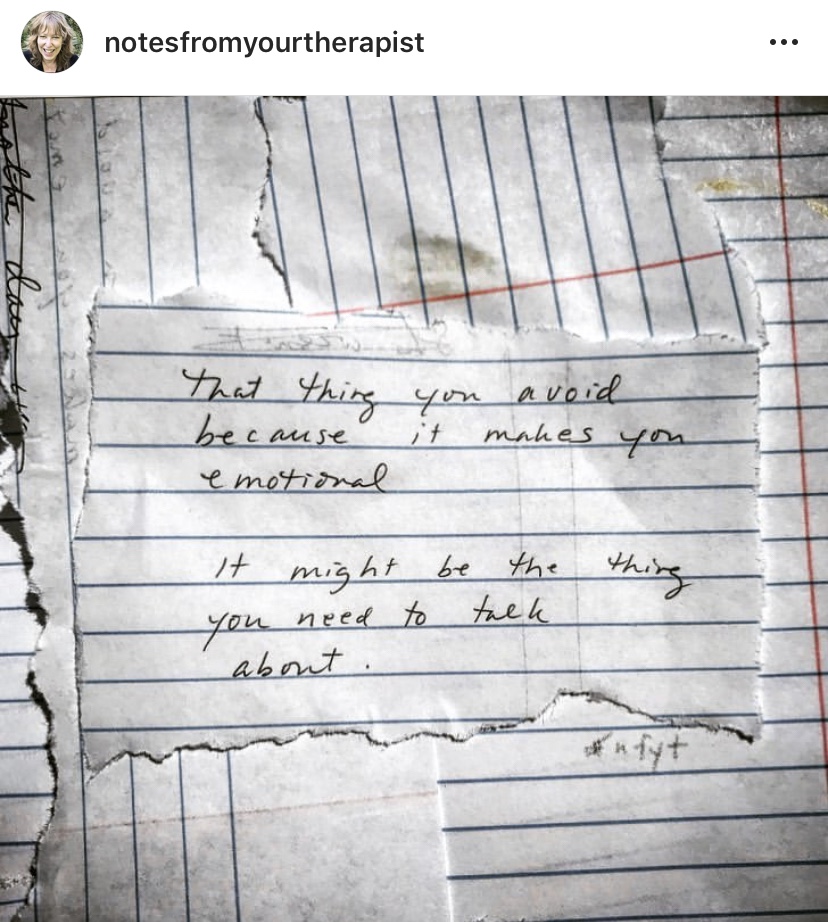 notesfromyourtherapist
That thing you avoid
because it makes you
emotional
It might be the thing
you need to talk
about.
#nfyt